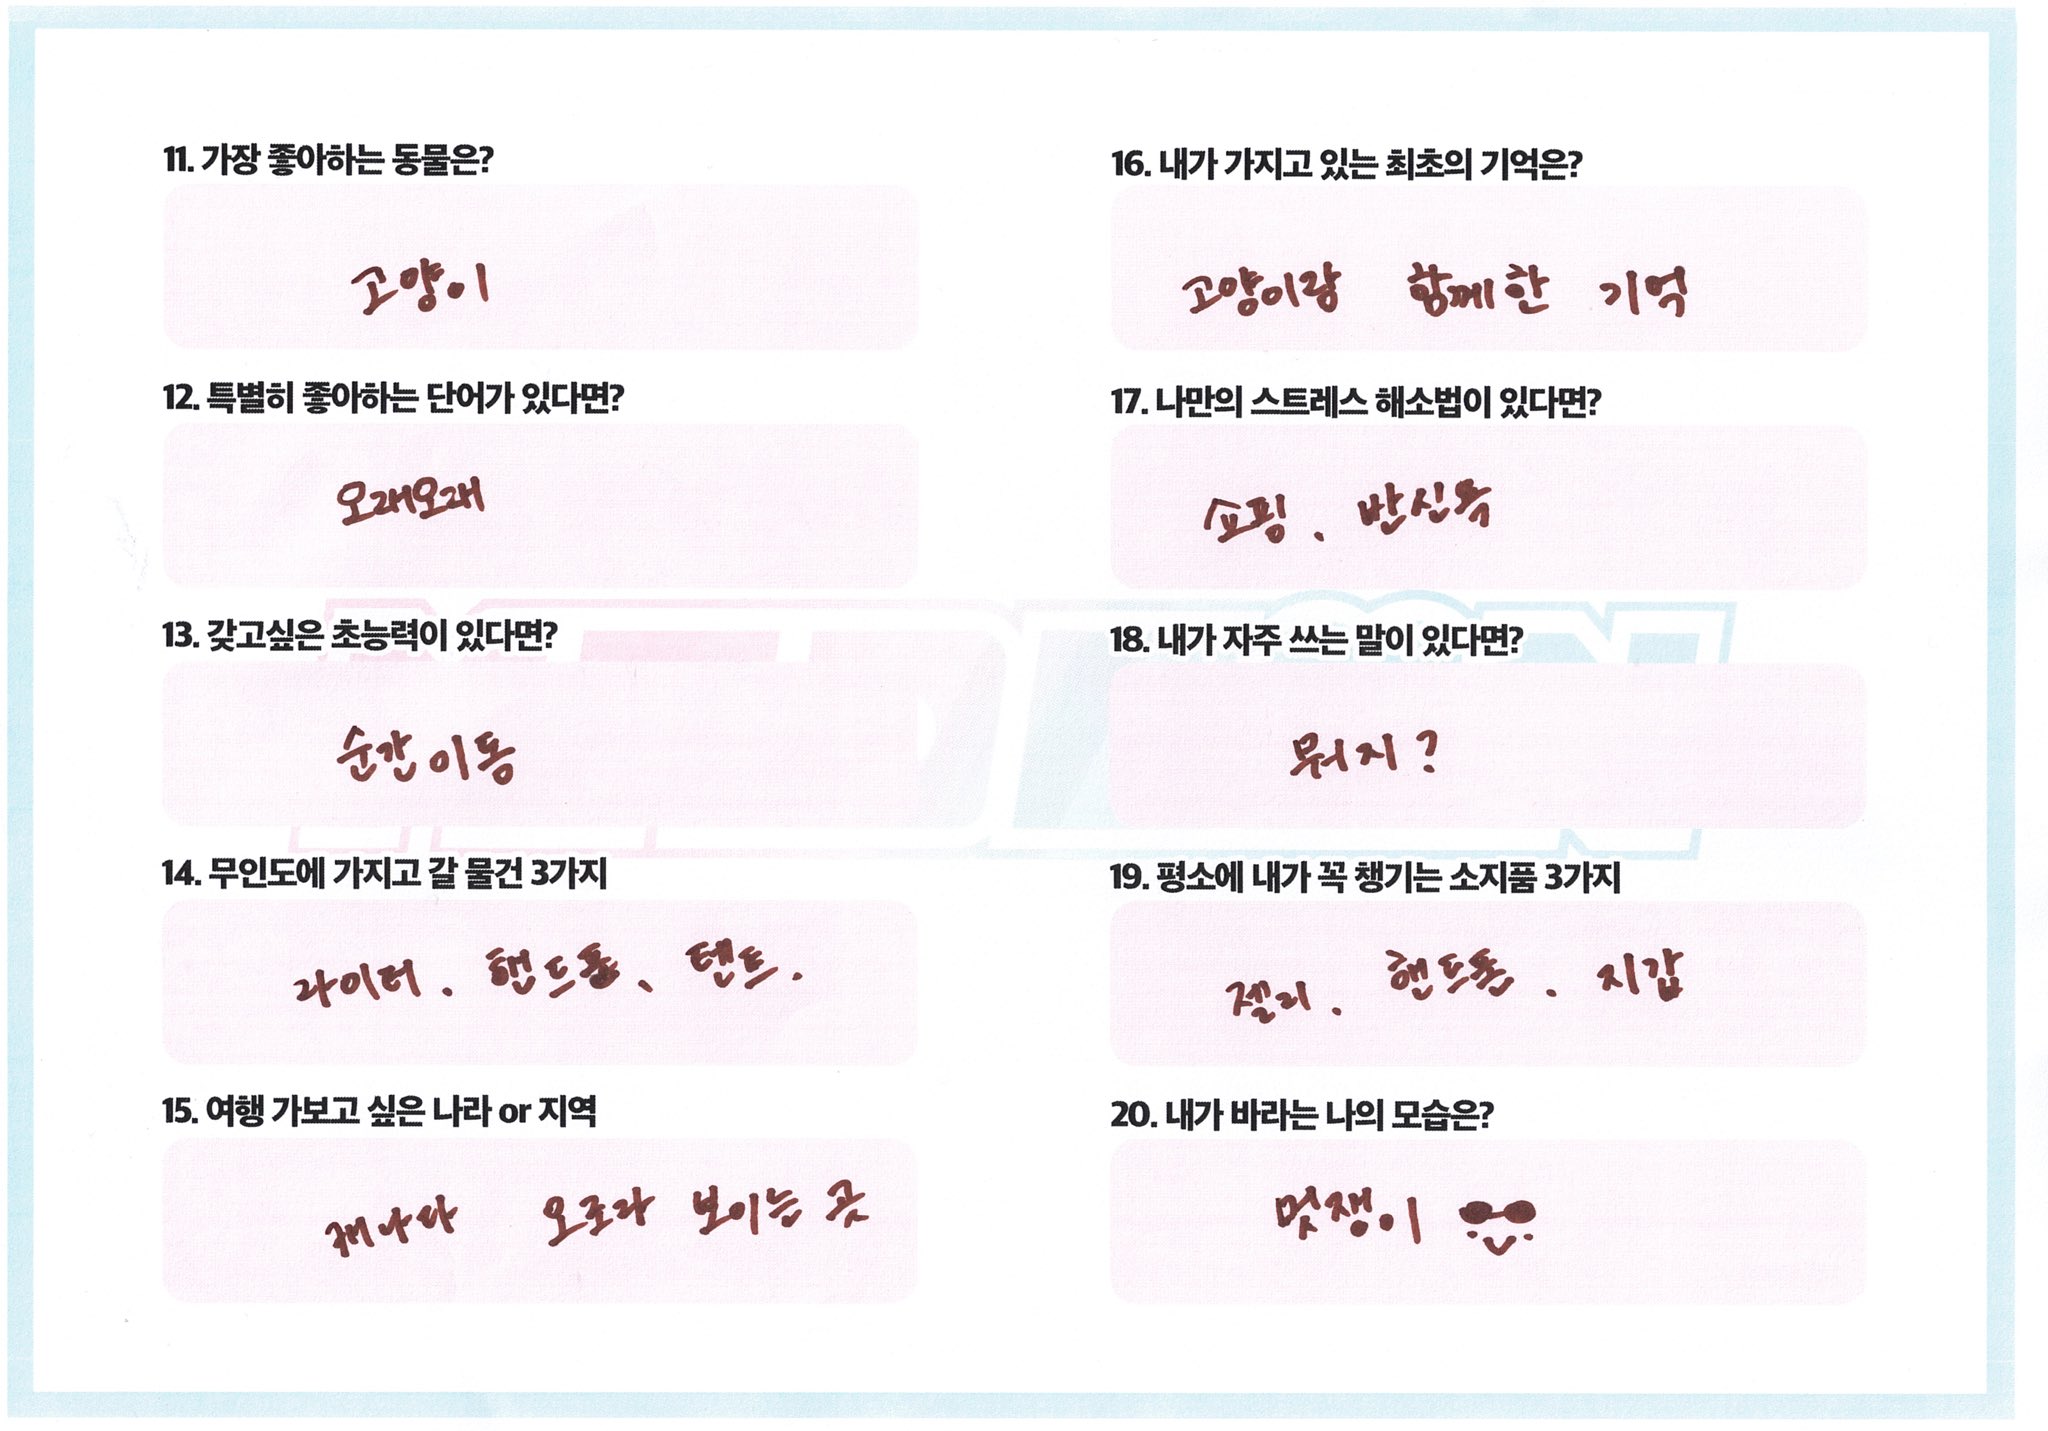 11. 가장 좋아하는 동물은?
고양이
12. 특별히 좋아하는 단어가 있다면?
오래오래
13. 갖고싶은 초능력이 있다면?
순간이동
14. 무인도에 가지고 갈 물건 3가지
라이터. 핸드폰、텐트.
15. 여행 가보고 싶은 나라 or 지역
캐나다 오로라 보이는 곳
16. 내가 가지고 있는 최초의 기억은?
고양이랑 함께한 기억
17. 나만의 스트레스 해소법이 있다면?
쇼핑. 반신욕
18. 내가 자주 쓰는 말이 있다면?
뭐지?
19. 평소에 내가 꼭 챙기는 소지품 3가지
젤리. 핸드폰. 지갑
20. 내가 바라는 나의 모습은?
멋쟁이